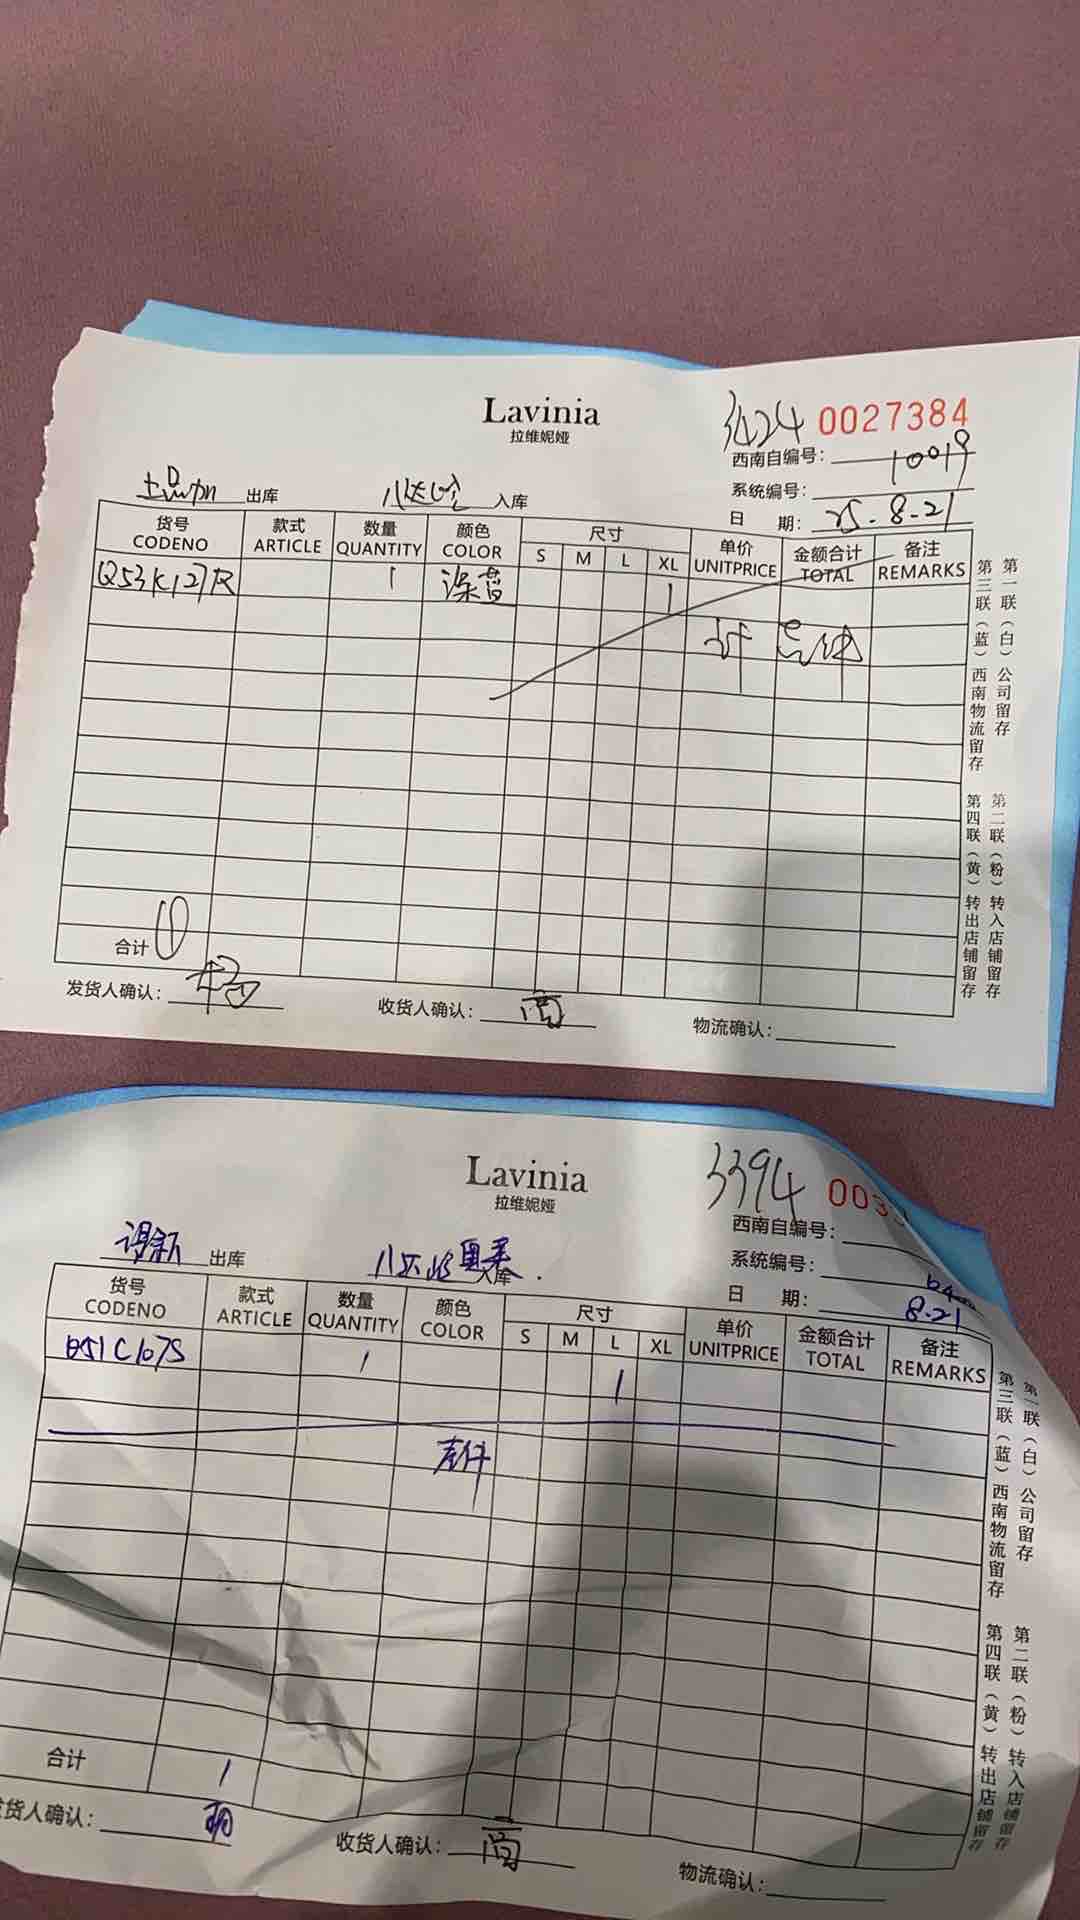 Lavinia
拉维妮娅
3424 0027384
西南自编号: 10019
系统编号:
出库 入库
日 期: 25-8-21
货号 款式 数量 颜色 尺寸 单价 金额合计 备注
CODENO ARTICLE QUANTITY COLOR S M L XL UNITPRICE TOTAL REMARKS
Q53K127R 1 深蓝 1
合计 ①
发货人确认: 收货人确认: 商 物流确认:
第一联（白）公司留存
第二联（粉）转入店铺留存
第三联（蓝）西南物流留存
第四联（黄）转出店铺留存
Lavinia
拉维妮娅
3394 003
西南自编号:
系统编号:
出库 入库
日 期: 8.21
货号 款式 数量 颜色 尺寸 单价 金额合计 备注
CODENO ARTICLE QUANTITY COLOR S M L XL UNITPRICE TOTAL REMARKS
Q51C107S 1 1
合计 1
发货人确认: 收货人确认: 商 物流确认:
第一联（白）公司留存
第二联（粉）转入店铺留存
第三联（蓝）西南物流留存
第四联（黄）转出店铺留存